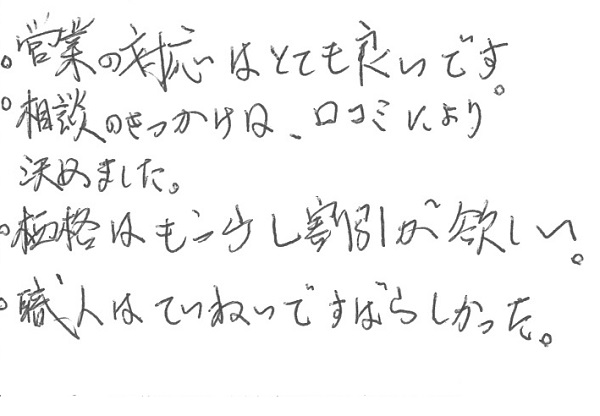 。営業の対応はとても良いです。
。相談のきっかけは、口コミにより
決めました。
。価格はもう少し割引が欲しい。
。職人はていねいですばらしかった。